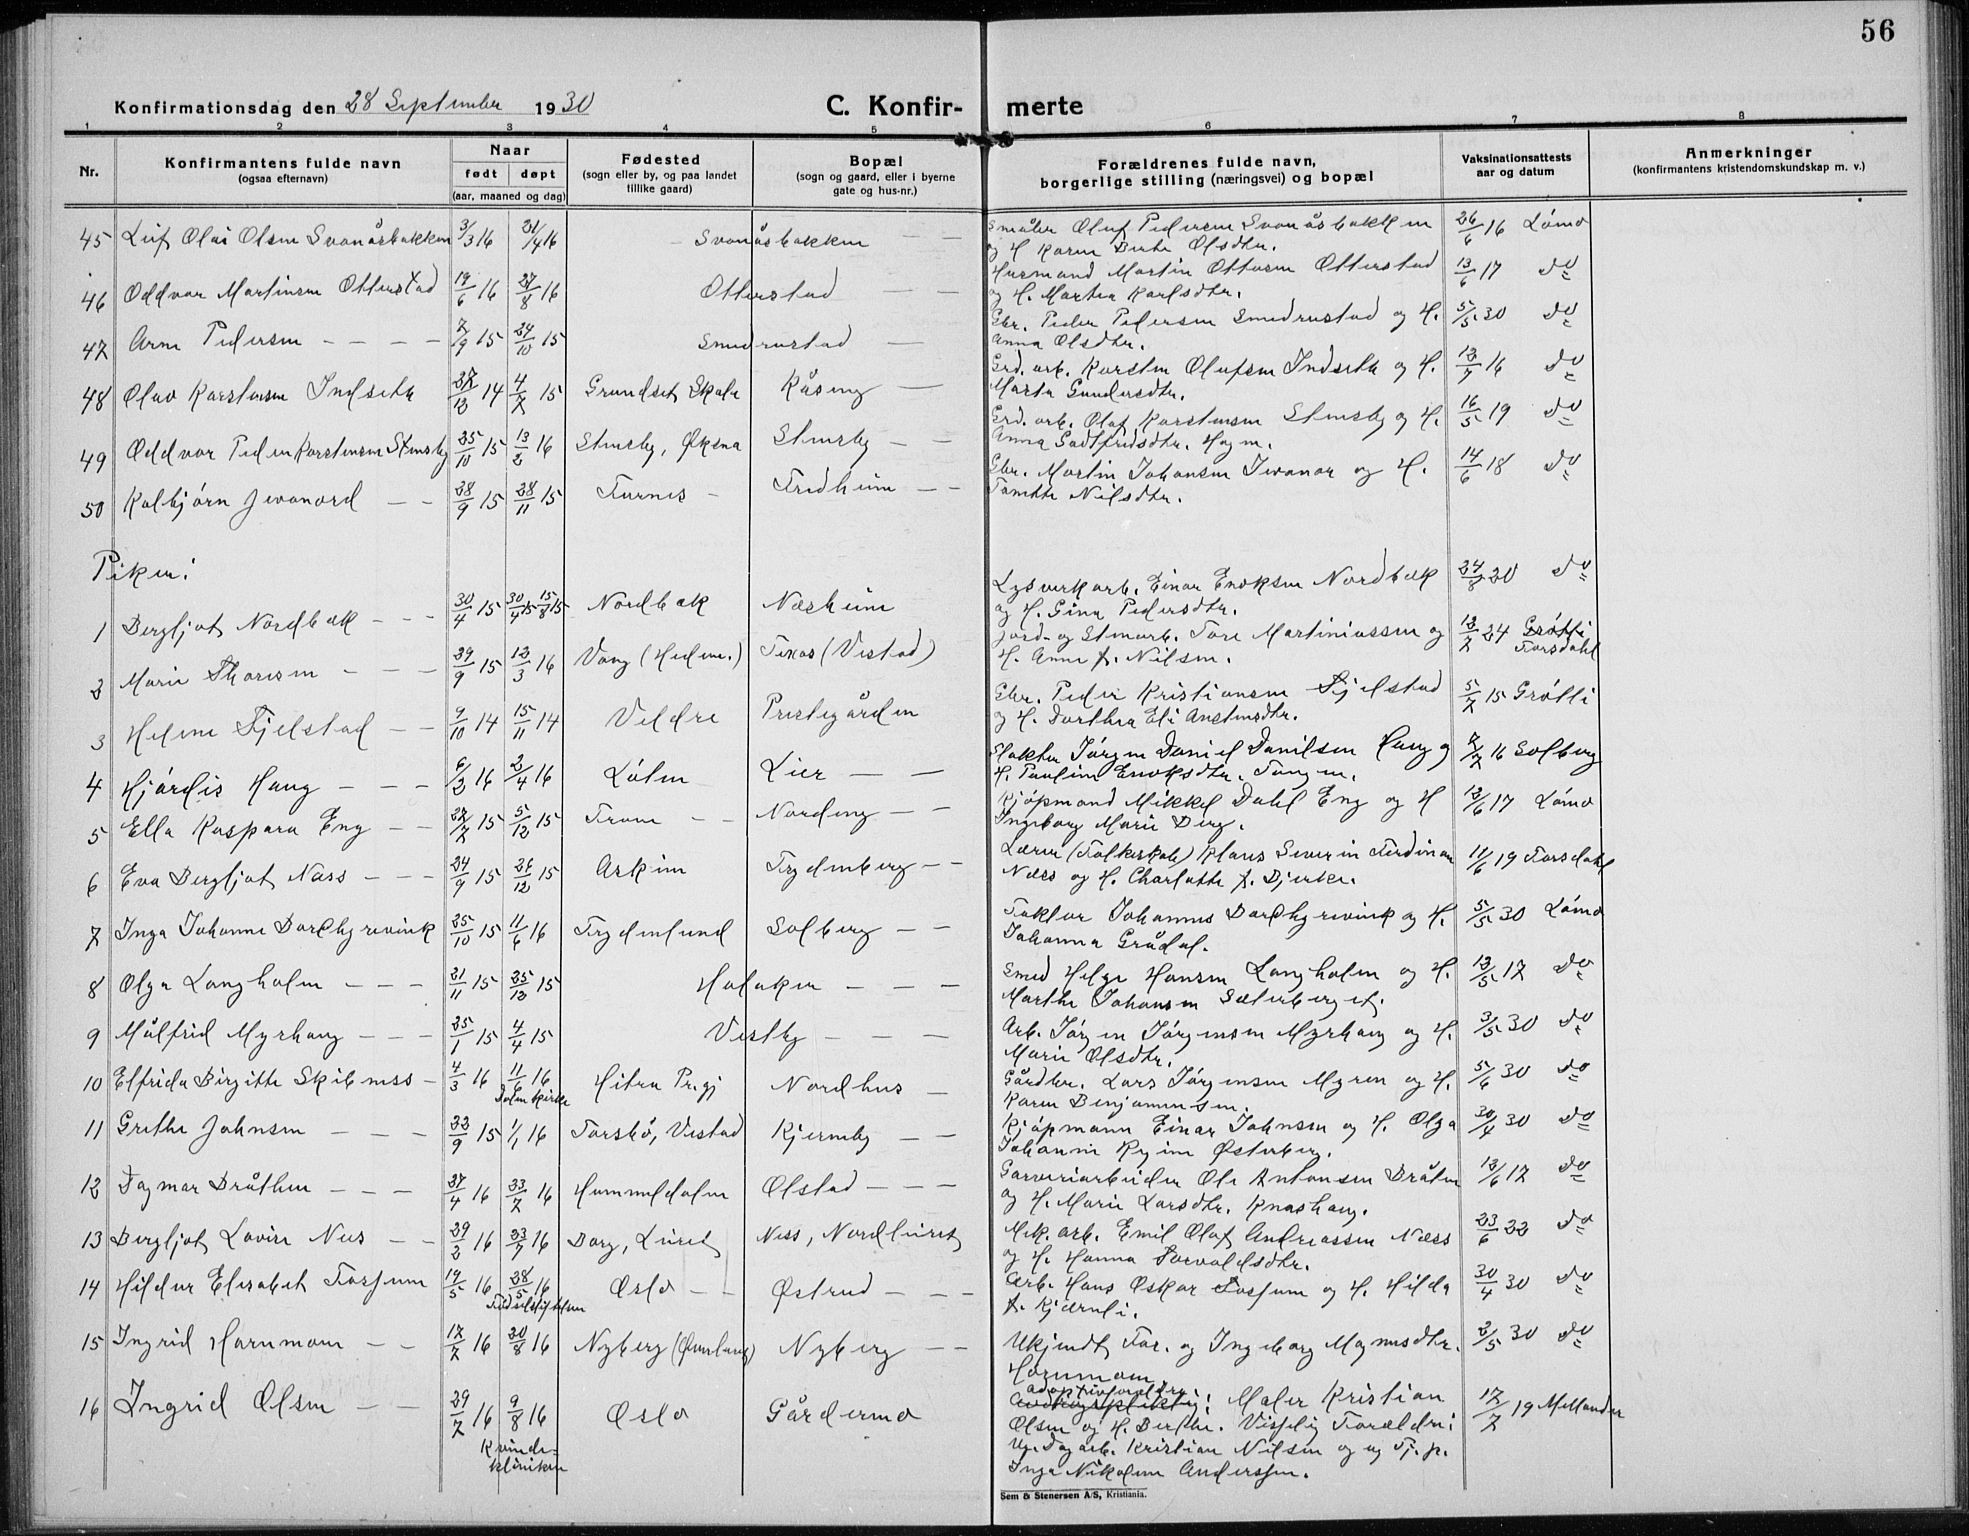 56
Konfirmationsdag den 28 September 1930 C. Konfir- merte
1 2 3 4 5 6 7 8
Nr. Konfirmantens fulde navn (ogsaa efternavn) Naar født døpt (aar, maaned og dag) Fødested (sogn eller by, og paa landet tillike gaard) Bopæl (sogn og gaard, eller i byerne gate og hus-nr.) Forældrenes fulde navn, borgerlige stilling (næringsvei) og bopæl Vaksinationsattests aar og datum Anmerkninger (konfirmantens kristendomskundskap m. v.)
45 Leif Olai Olsen Svenåsbakken 3/3 16 Svenåsbakken — — Småbr. Oluf Pedersen Svenåsbakken 26/6 16 Lömo
og H. Karen Berte Olsdtr.
46 Oddvar Martinsen Otterstad 19/6 16 27/8 16 Otterstad — — Husmand Martin Ottosen Otterstad 13/6 17 do
og H. Martea Karlsdtr.
47 Arne Pedersen — — — — 7/9 15 24/10 15 Smedrustad — Gbr. Peder Pedersen Smedrustad og H. 5/5 30 do
Anna Olsdtr.
48 Olav Karstensen Indseth 27/12 14 4/7 15 Grundset Skole Råseng — Grd. arb. Karsten Olufsen Indseth og H. 12/7 16 do
Marta Gundersdtr.
49 Oddvar Peder Karstensen Stensby 25/10 15 13/2 16 Stensby, Øksna Stensby — — Grd. arb. Olaf Karstensen Stensby og H. 16/5 19 do
Anna Gottfredsdtr. Hagen.
50 Kolbjörn Jevanord — — 28/9 15 28/11 15 Furnes — Fredheim — — Gbr. Martin Johansen Jevanor og H. 14/6 18 do
Nilsdtr.
Piker:
1 Bergljot Nordbæk — — — 30/4 15 30/4 15 15/8 15 Nordbæk Næsheim Lysverkarb. Einar Enoksen Nordbæk 24/8 20 do
og H. Gina Pedersdtr.
2 Marie Thoresen — — — 29/9 15 12/3 16 Vang (Hedm.) (Vestad) Jord- og Stenarb. Tore Martiniussen og 12/7 24 Grötti
H. Anne f. Nilsen. Forsdahl
3 Helene Fjelstad — — 9/10 14 15/11 14 Veldre Prestegården Gbr. Peder Kristiansen Fjelstad 5/7 15 Grötti
og H. Dorthea Eli Austensdtr.
4 Hjördis Haug — — — 6/2 16 2/4 16 Löten Lier — — Slakter Jörgen Daniel Danielsen Haug og 7/7 16 Solberg
H. Pauline Enoksdtr. Tangen.
5 Ella Kaspara Eng — — 27/7 15 5/12 15 Trom — — Nordeng — Kjøpmand Mikkel Dahl Eng og H 12/6 17 Lömo
Ingeborg Marie Berg.
6 Eva Bergljot Næss — — — 24/9 15 26/12 15 Askim Frydenberg — — Lærer (Folkeskole) Klaus Severin Ferdinan 11/6 19 Forsdahl
Næss og H. Charlotte f. Bjerke.
7 Inga Johanne Dordhgrevink 25/10 15 11/6 16 Frydenlund Solberg — — Faktor Johannes Dordhgrevink og H. 5/5 30 Lömo
Johanna Grådal.
8 Olga Langholm — — — 21/11 15 25/12 15 Holoken — — — Smed Helge Hansen Langholm og H. 13/5 17 do
Marthe Johansen Sæterberget.
9 Målfrid Myrhaug — — — 25/1 15 4/4 15 Vestby — — — Arb. Jörgen Jörgensen Myrhaug og H. 3/5 30 do
Marie Olsdtr.
10 Elfrida Birgitte Skibenes — 4/3 16 11/6 16 Hitra Prgj Nordhus — Gårdbr. Lars Jörgensen Myren og H. 5/6 30 do
Dolm kirke Karen Benjaminsen.
11 Grethe Johnsen — — — 22/9 15 1/1 16 Torsbö, Vestad Kjernsby — — Kjöpmann Einar Johnsen og H. Olga 30/4 30 do
Johannie Østerberg.
12 Dagmar Bråthen — — — 27/4 16 23/7 16 Hummeldalen Olstad — — — Garveriarbeider Ole Antonsen Bråten 12/6 17 do
og H. Marie Larsdtr. Knashaug.
13 Bergljot Lovise Nes — — 29/3 16 23/7 16 Borg, Luset Ness, Nordluset Mek. arb. Emil Olaf Andreassen Næss 23/6 22 do
og H. Hanna Torvaldsdtr.
14 Hildur Elisabet Fossum 19/5 16 28/5 16 Oslo — — Østrud — — — Arb. Hans Oskar Fossum og H. Hilda 30/4 30 do
Fødselsstiftelsen f. Kjærnli.
15 Ingrid Hornmoen — — 17/7 16 20/8 16 Nyberg Nyberg — — Ukjendt Far. og Ingeborg Magnusdtr. 2/5 30 do
Hornmoen
16 Ingrid Olsen — — 29/7 16 9/8 16 Oslo Gårdermo adoptivforeldre: Maler Kristian 17/7 19 Mellander
Kvindeklinikken Olsen og H. Berthe. Virkelig Forældre:
Ug. Dagarb. Kristian Nilsen og ug Tj. p.
Inga Nikoline Anderssen.
Sem & Stenersen A/S, Kristiania.